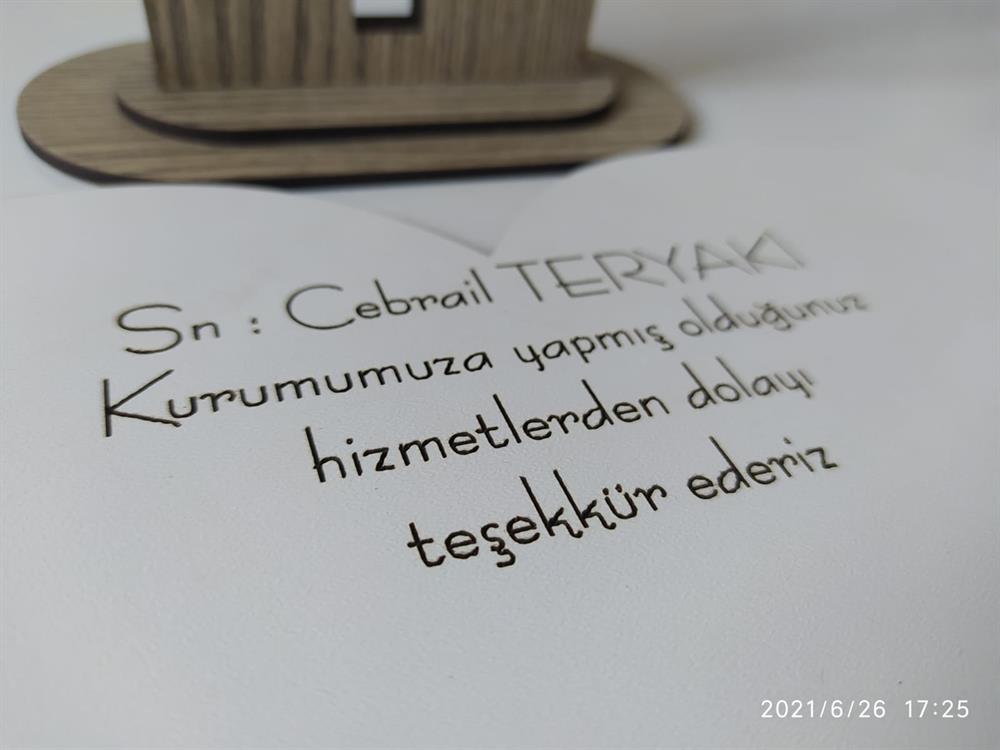 Sn : Cebrail TERYAKİ
Kurumumuza yapmış olduğunuz
hizmetlerden dolayı
teşekkür ederiz
2021/6/26 17:25